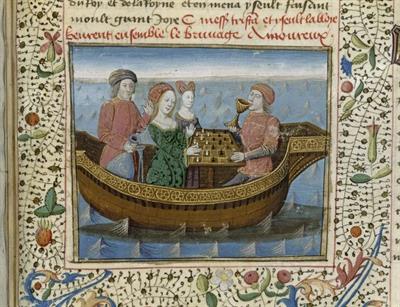 du roy et de la royne et en mena yseult faisant
moult grant Joye C mess tristã et yseult la blõde
beurent ensemble le bruuage Amoureux